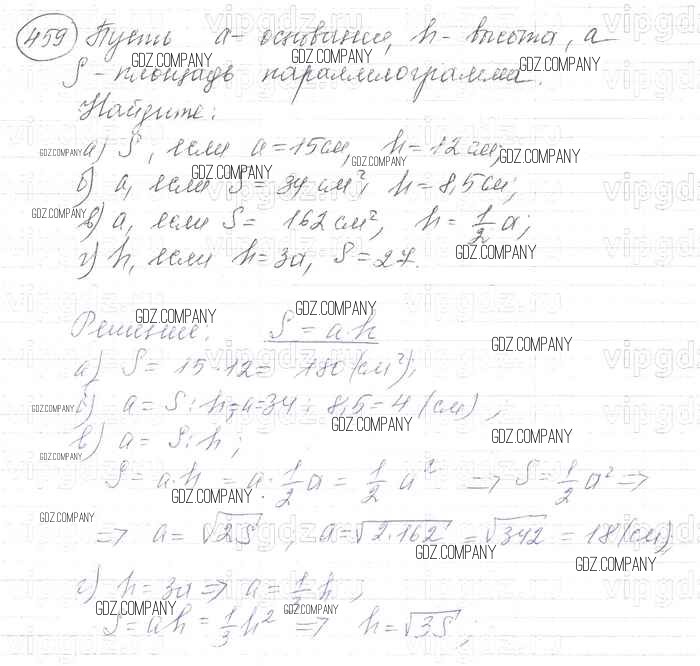 459 Пусть a - основание, h - высота, а
S - площадь параллелограмма.
Найдите:
а) S, если a = 15см, h = 12 см;
б) a, если S = 34 см², h = 8,5см;
в) a, если S = 162 см², h = 1/2 a;
г) h, если h = 3a, S = 27.
Решение: S = a·h
а) S = 15·12 = 180 (см²);
б) a = S : h; a = 34 : 8,5 = 4 (см),
в) a = S : h;
S = a·h = a · 1/2 a = 1/2 a² => S = 1/2 a² =>
=> a = √2S, a = √2·162 = √342 = 18 (см)
г) h = 3a => a = 1/3 h,
S = ah = 1/3 h² => h = √3S;
GDZ.COMPANY
vipgdz.ru